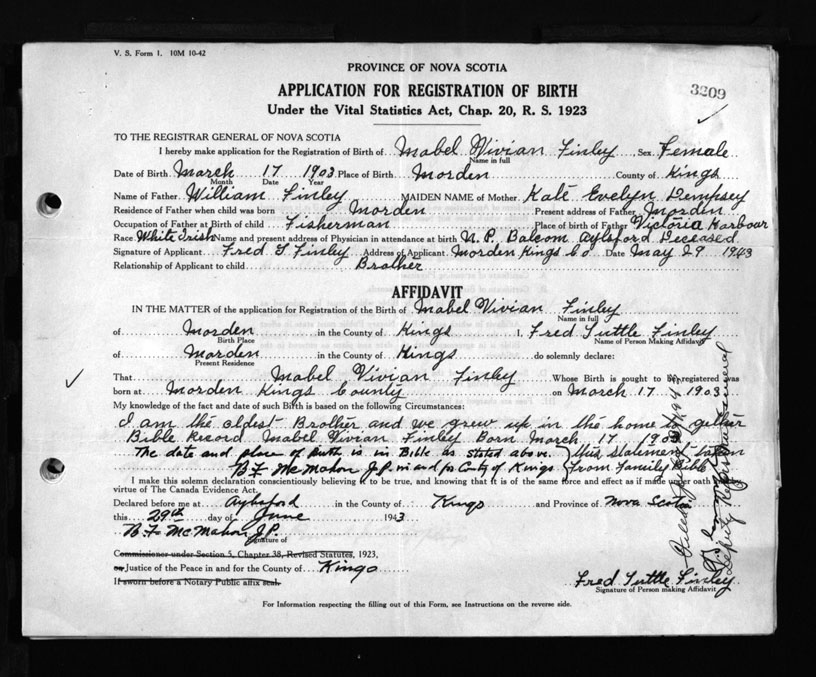 V. S. Form 1. 10M 10-42
PROVINCE OF NOVA SCOTIA
APPLICATION FOR REGISTRATION OF BIRTH
3209
Under the Vital Statistics Act, Chap. 20, R. S. 1923
TO THE REGISTRAR GENERAL OF NOVA SCOTIA
I hereby make application for the Registration of Birth of Mabel Vivian Finley, Sex Female
Name in full
Date of Birth March 17 1903 Place of Birth Morden County of Kings
Month Date Year
Name of Father William Finley MAIDEN NAME of Mother Kate Evelyn Dempsey
Residence of Father when child was born Morden Present address of Father Morden
Occupation of Father at Birth of child Fisherman Place of birth of Father Victoria Harbour
Race White Irish Name and present address of Physician in attendance at birth N. P. Balcom Aylsford Deceased
Signature of Applicant Fred T Finley Address of Applicant Morden Kings Co Date May 29 1943
Relationship of Applicant to child Brother
AFFIDAVIT
IN THE MATTER of the application for Registration of the Birth of Mabel Vivian Finley
Name in full
of Morden in the County of Kings I, Fred Tuttle Finley
Birth Place Name of Person Making Affidavit
of Morden in the County of Kings do solemnly declare:
Present Residence
That Mabel Vivian Finley Whose Birth is sought to be registered was
born at Morden Kings County on March 17 1903
My knowledge of the fact and date of such Birth is based on the following Circumstances:
I am the eldest Brother and we grew up in the home to gether
Bible Record Mabel Vivian Finley Born March 17 1903
The date and place of Birth is in Bible as stated above. this statement taken
B F McMahon J.P. in and for County of Kings from Family Bible
I make this solemn declaration conscientiously believing it to be true, and knowing that it is of the same force and effect as if made under oath by
virtue of The Canada Evidence Act.
Declared before me at Aylsford in the County of Kings and Province of Nova Scotia
this 29th day of June 1943
B F McMahon J.P.
Signature of
Commissioner under Section 5, Chapter 38, Revised Statutes, 1923,
or Justice of the Peace in and for the County of Kings
If sworn before a Notary Public affix seal.
Fred Tuttle Finley
Signature of Person making Affidavit
For Information respecting the filling out of this Form, see Instructions on the reverse side.
Deputy Registrar General